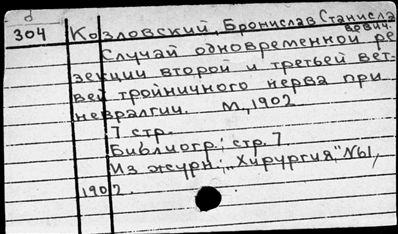 304 Козловский, Бронислав Станисла
вович.
Случай одновременной ре
зекции второй и третьей вет-
вей тройничного нерва при
невралгии. М., 1902
7 стр.
Библиогр.: стр. 7
Из журн.: „Хирургия," №1,
1902.